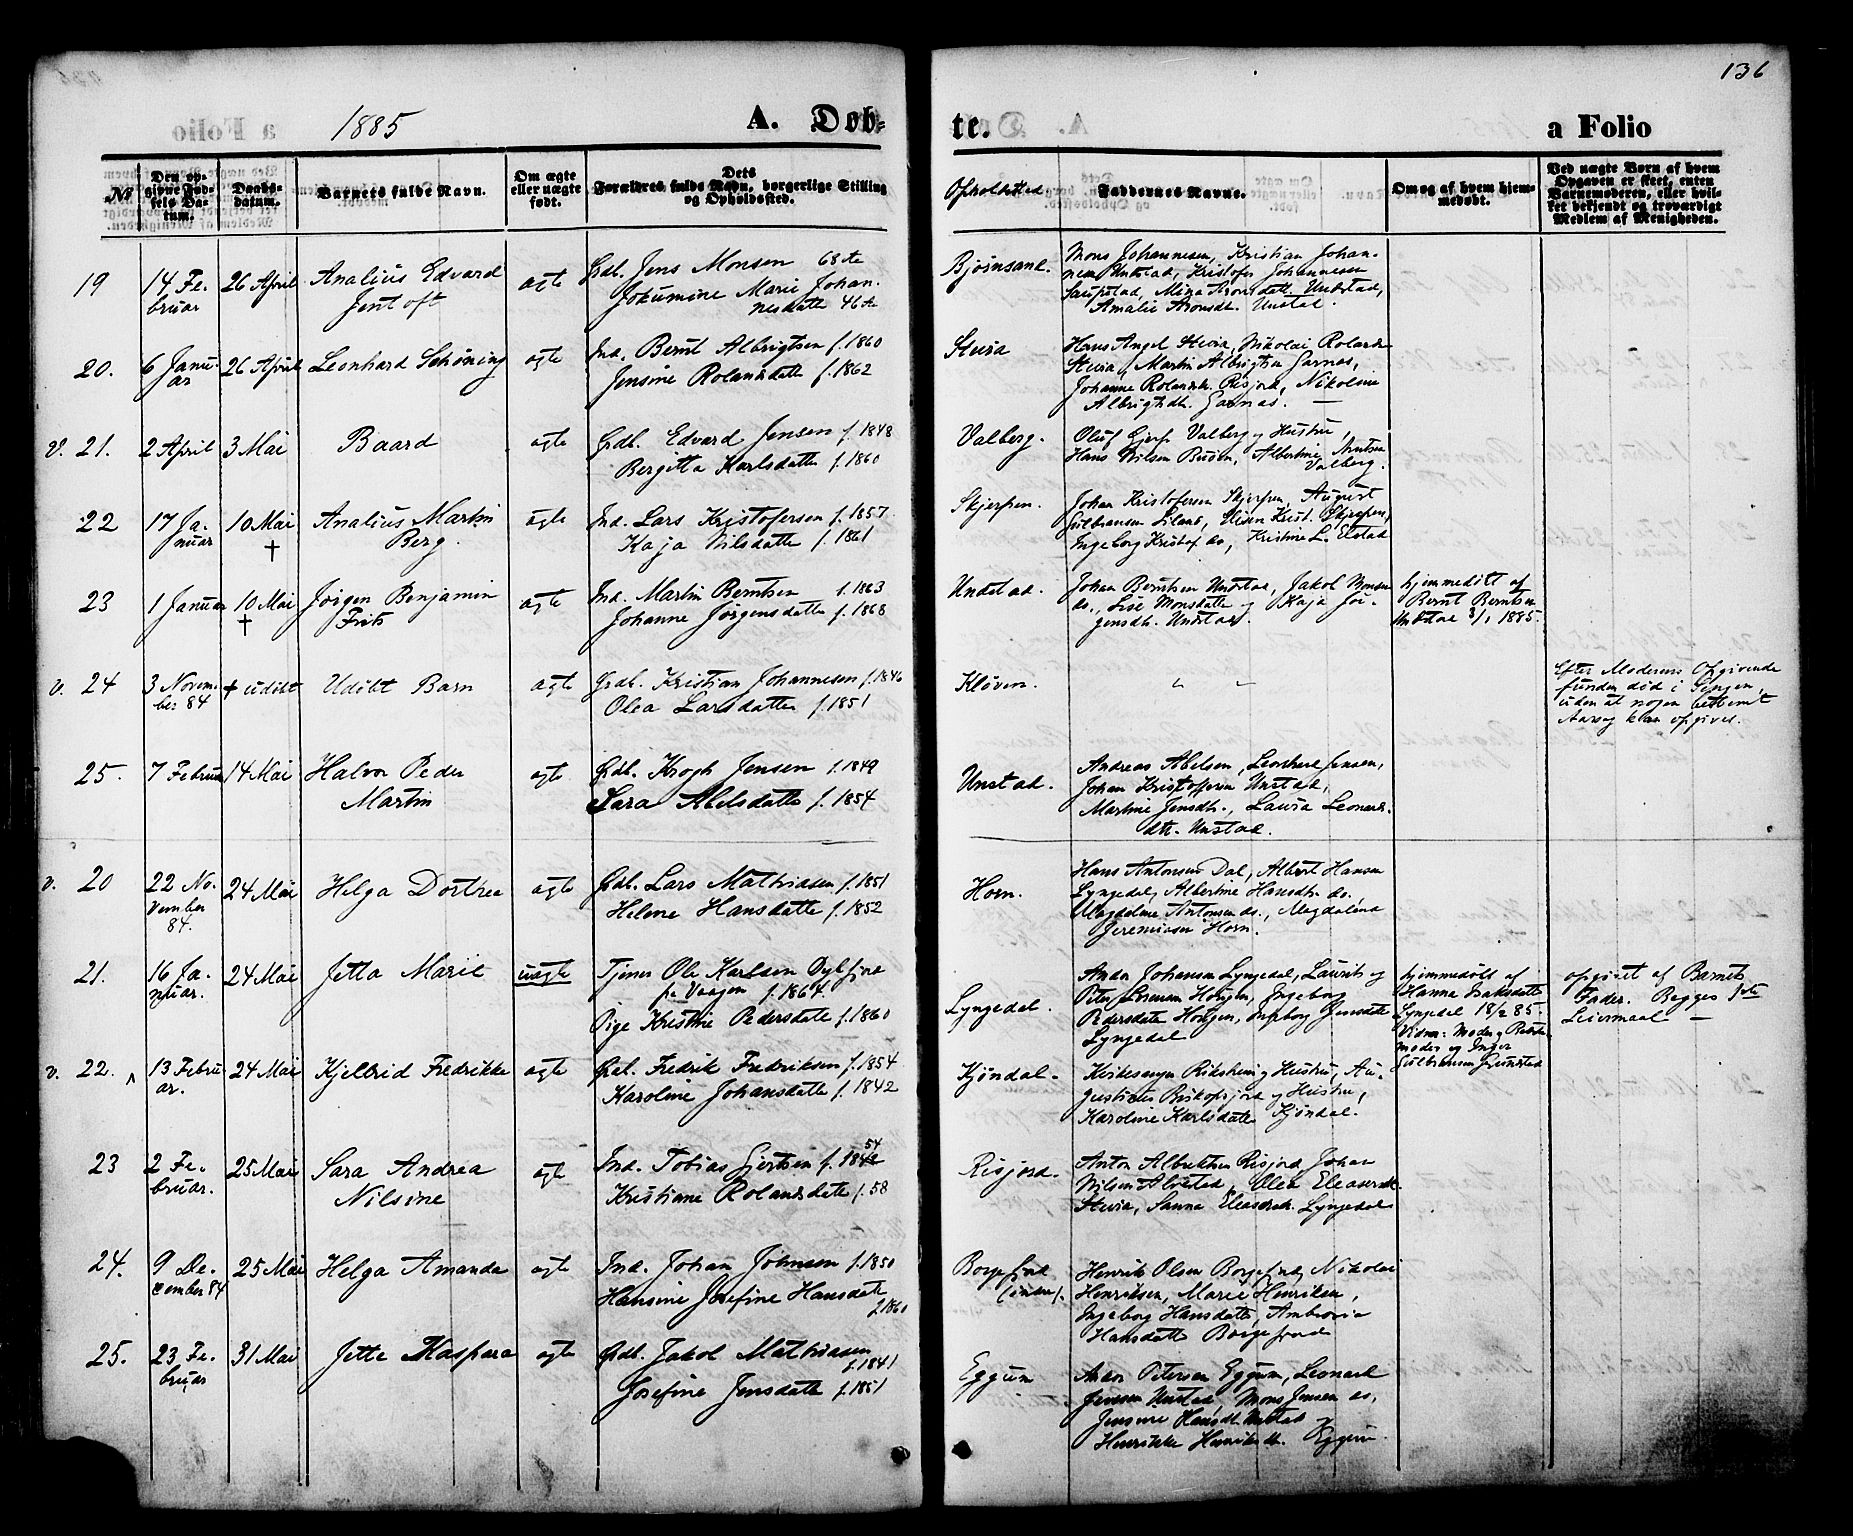 136
1885
A. Døb-
te.
a Folio
№
Den op-
givne Fød-
sels Da-
tum.
Daabs-
datum.
Barnets fulde Navn.
Om ægte
eller uægte
født.
Dets
Forældres fulde Navn, borgerlige Stilling
og Opholdssted.
Opholdsted.
Faddernes Navne.
Om og af hvem hjem-
medøbt.
Ved uægte Børn af hvem
Opgaven er skeet, enten
Barnemoderen, eller hvil-
ket bekjendt og troværdigt
Medlem af Menigheden.
19
14 Fe-
bruar
26 April
Analius Edvard
Jentoft
ægte
Grdb. Jens Monsen 68 Aar
Jokumine Marie Johan-
nesdatte 46 Aar
Bjørnsand.
Mons Johannesen, Kristian Johan-
nesen Undstad, Kristofer Johannesen
Saupstad, Mina Aronsdatt. Undstad,
Amalie Aronsdt. Unstad.
20.
6 Janu-
ar
26 April
Leonhard Schøning
ægte
Ind. Bernt Albrigtsen f. 1860
Jensine Rolandsdatte f. 1862
Steira
Hans Angel Steira, Nikolai Rolands
Steira, Martin Albrigtsen Garnas,
Johanne Rolandsd. Risjord, Nikoline
Albrigtsdt. Garnas. —
V. 21.
2 April
3 Mai
Baard
ægte
Grdb. Edvard Jensen f. 1848
Bergitta Karlsdatte f. 1860
Valberg.
Oluf Gjert Valberg og Hustru,
Hans Nilsen Buøen, Albertine Knutsen
Valberg.
22
17 Ja-
nuar
10 Mai
+
Analius Martin
Berg.
ægte
Ind. Lars Kristofersen f. 1857.
Kaja Nilsdatte f. 1861
Skjerpen.
Johan Kristofersen Skjerpen, August
Gulbransen Liland, Elisen Krist. Skjerpen,
Ingeborg Kristof. do, Kristine L. Elstad
23
1 Januar
10 Mai
+
Jørgen Benjamin
Frits
ægte
Ind. Martin Berntsen f. 1863
Johanne Jørgensdatte f. 1868
Undstad.
Johan Berntsen Undstad, Jakob Monsen
do., Lise Monsdatte og Kaja Jør-
gensdt. Undstad.
hjemmedøbt af
Bernt Berntsen
Undstad 3/1 1885.
v. 24
3 Novem-
ber 84
+ udøbt
Udøbt Barn
ægte
Grdb. Kristian Johannesen f. 1846
Olea Larsdatte f. 1851
Kløven.
" "
Efter Moderens Opgivende
funden død i Sengen,
uden at nogen bestemt
Aarsag kan opgives.
25.
7 Februar
14 Mai
Halvor Peder
Martin
ægte
Grdb. Krogh Jensen f. 1849
Sara Abelsdatte f. 1854
Unstad.
Andreas Abelsen, Leonhard Jensen,
Johan Kristoffersen Unstad,
Martine Jensdt., Laura Leonards-
dtr. Unstad.
v. 20
22 No-
vember
84.
24 Mai
Helga Dorthea
ægte
Grdb. Lars Mathiasen f. 1851
Helene Hansdatte f. 1852
Horn.
Hans Antonsen Dal, Albert Hansen
Lyngedal, Albertine Hansdt. do.
Magdeline Antonsen do., Magdalena
Jeremiasen Horn.
21.
16 Ja-
nuar.
24 Mai
Jetta Marie
uægte
Tjener Ole Karlsen Dybfjord
fr. Vaagen f. 1864.
Pige Kristine Pedersdatte f. 1860
Lyngedal.
Andor Johansen Lyngedal, Laurits og
Peter Lorensen Hougen, Ingeborg
Pedersdatte Hougen, Ingeborg Jensdatte
Lyngedal
hjemmedøbt af
Hanna Isaksdatte
Lyngedal 18/2 85.
Vidner: Moder og Beste-
moder og Inger
Gulbransen Grundstad
opgivet af Barnets
Fader. Begges 1ste
Leiermaal —
v. 22.
13 Febru-
ar.
24 Mai
Kjellrid Fredrikke
ægte
Grdb. Fredrik Fredriksen f. 1854
Karoline Johansdatte f. 1842
Kjøndal.
Kirkesanger Rikstrein og Hustru, Au-
gustinus Biskopsjord og Hustru,
Karoline Karlsdatte Kjøndal.
23
2 Fe-
bruar.
25 Mai
Sara Andrea
Nilsine
ægte
Ind. Tobias Gjertsen f. 1842 54
Kristiane Rolandsdatte f. 58
Risjord.
Anton Albrektsen Risjord, Johan
Nilsen Alstad, Olea Eleasersdt.
Steira, Sanna Eleasersdt. Lyngedal
24.
9 De-
cember 84
25 Mai
Helga Amanda
ægte
Ind. Johan Johnsen f. 1850
Hansine Josefine Hansdatte
f. 1860
Borgefjord
(indre).
Henrik Olsen Borgefjord, Nikolai
Henriksen, Marie Henriksen,
Ingeborg Hansdatte, Ambrosia
Hansdatte Borgefjord
25.
23 Fe-
bruar
31 Mai
Jette Kaspara
ægte
Grdb. Jakob Mathiasen
f. 1841
Josefine Jensdatte f. 1851
Eggum
Andor Petersen Eggum, Leonard
Jensen Unstad, Mons Jensen do,
Jensine Hansdt. Unstad
Henrikke Henriksdt. Eggum.